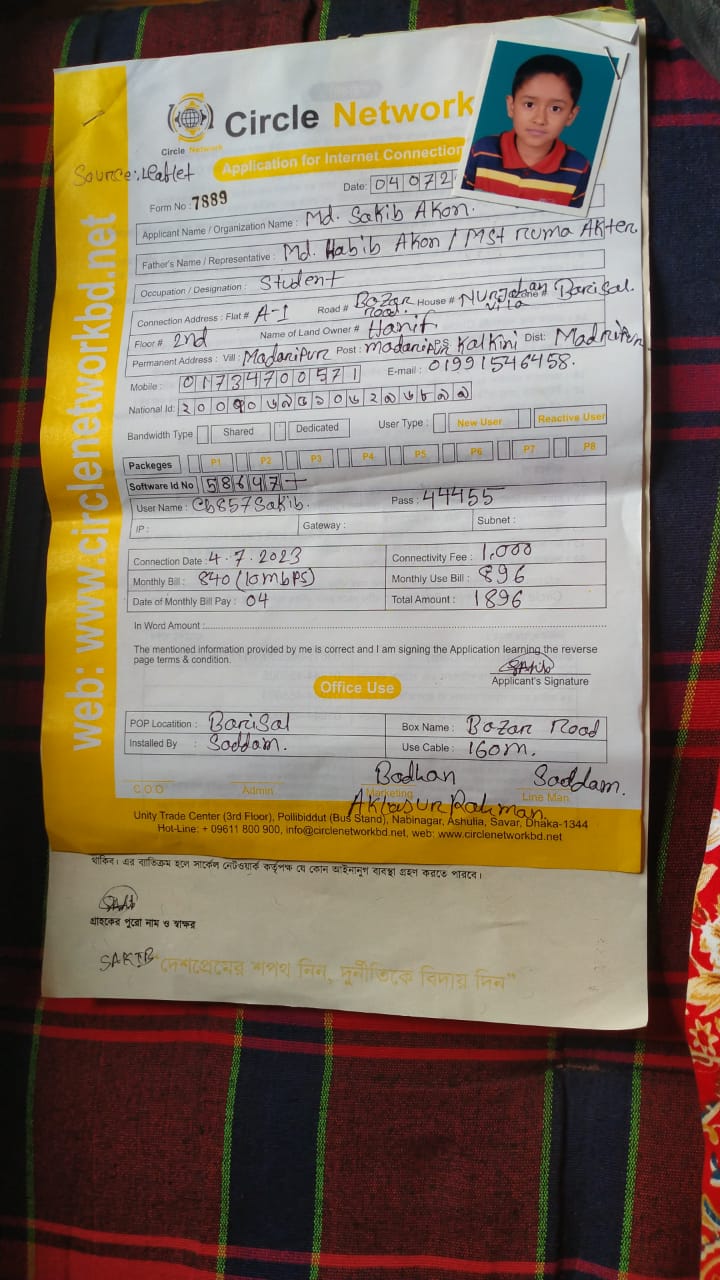 Circle Network
Circle Network
Application for Internet Connection
Source: Leaflet
Form No : 7889
Date: 04072
Applicant Name / Organization Name : Md. Sakib Akon.
Father's Name / Representative : Md. Habib Akon / Mst Ruma Akter
Occupation / Designation : Student
Connection Address : Flat # A-1 Road # Bazar Road. House # Nurjahan Villa Zone # Barisal.
Floor # 2nd Name of Land Owner # Hanif
Permanent Address : Vill : Madaripur Post : Madaripur PS Kalkini Dist: Madripur
Mobile : 01734700571 E-mail : 01991546458.
National Id:
Bandwidth Type Shared Dedicated User Type : New User Reactive User
Packeges P1 P2 P3 P4 P5 P6 P7 P8
Software Id No 58647
User Name : Cb857Sakib. Pass : 44455
IP : Gateway : Subnet :
Connection Date : 4.7.2023 Connectivity Fee : 1,000
Monthly Bill : 840 (10mbps) Monthly Use Bill : 896
Date of Monthly Bill Pay : 04 Total Amount : 1896
In Word Amount :
The mentioned information provided by me is correct and I am signing the Application learning the reverse
page terms & condition.
Sakib
Applicant's Signature
Office Use
POP Locatition : Barisal Box Name : Bazar Road
Installed By : Saddam. Use Cable : 160m.
Badhan Saddam.
C.O.O Admin Marketing Line Man
Unity Trade Center (3rd Floor), Pollibiddut (Bus Stand), Nabinagar, Ashulia, Savar, Dhaka-1344
Hot-Line: + 09611 800 900, info@circlenetworkbd.net, web: www.circlenetworkbd.net
web: www.circlenetworkbd.net
থাকিব। এর ব্যতিক্রম হলে সার্কেল নেটওয়ার্ক কর্তৃপক্ষ যে কোন আইনানুগ ব্যবস্থা গ্রহণ করতে পারবে।
Sakib
গ্রাহকের পুরো নাম ও স্বাক্ষর
SAKIB
"দেশপ্রেমের শপথ নিন, দুর্নীতিকে বিদায় দিন"